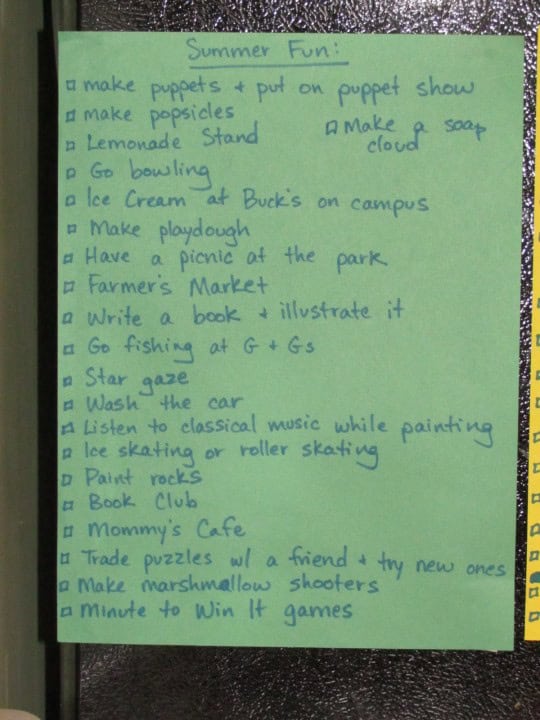 Summer Fun:
☐ make puppets + put on puppet show
☐ make popsicles
☐ Make a soap
cloud
☐ Lemonade Stand
☐ Go bowling
☐ Ice Cream at Buck's on campus
☐ Make playdough
☐ Have a picnic at the park
☐ Farmer's Market
☐ Write a book + illustrate it
☐ Go fishing at G + Gs
☐ Star gaze
☐ Wash the car
☐ Listen to classical music while painting
☐ Ice skating or roller skating
☐ Paint rocks
☐ Book Club
☐ Mommy's Cafe
☐ Trade puzzles w/ a friend + try new ones
☐ Make marshmallow shooters
☐ Minute to Win It games